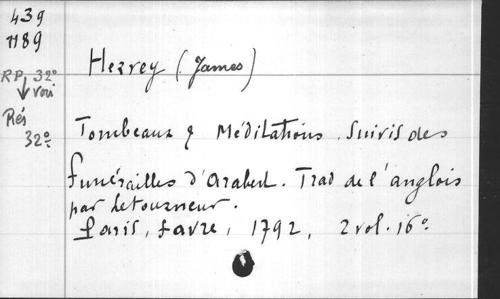 439
1189
RP. 32°
voir
Rés
32°
Hervey (James)
Tombeaux & Méditations. Suivis des
funérailles d'Arabert. Trad de l'anglois
par Letourneur.
Paris, Favre, 1792, 2 vol. 16°